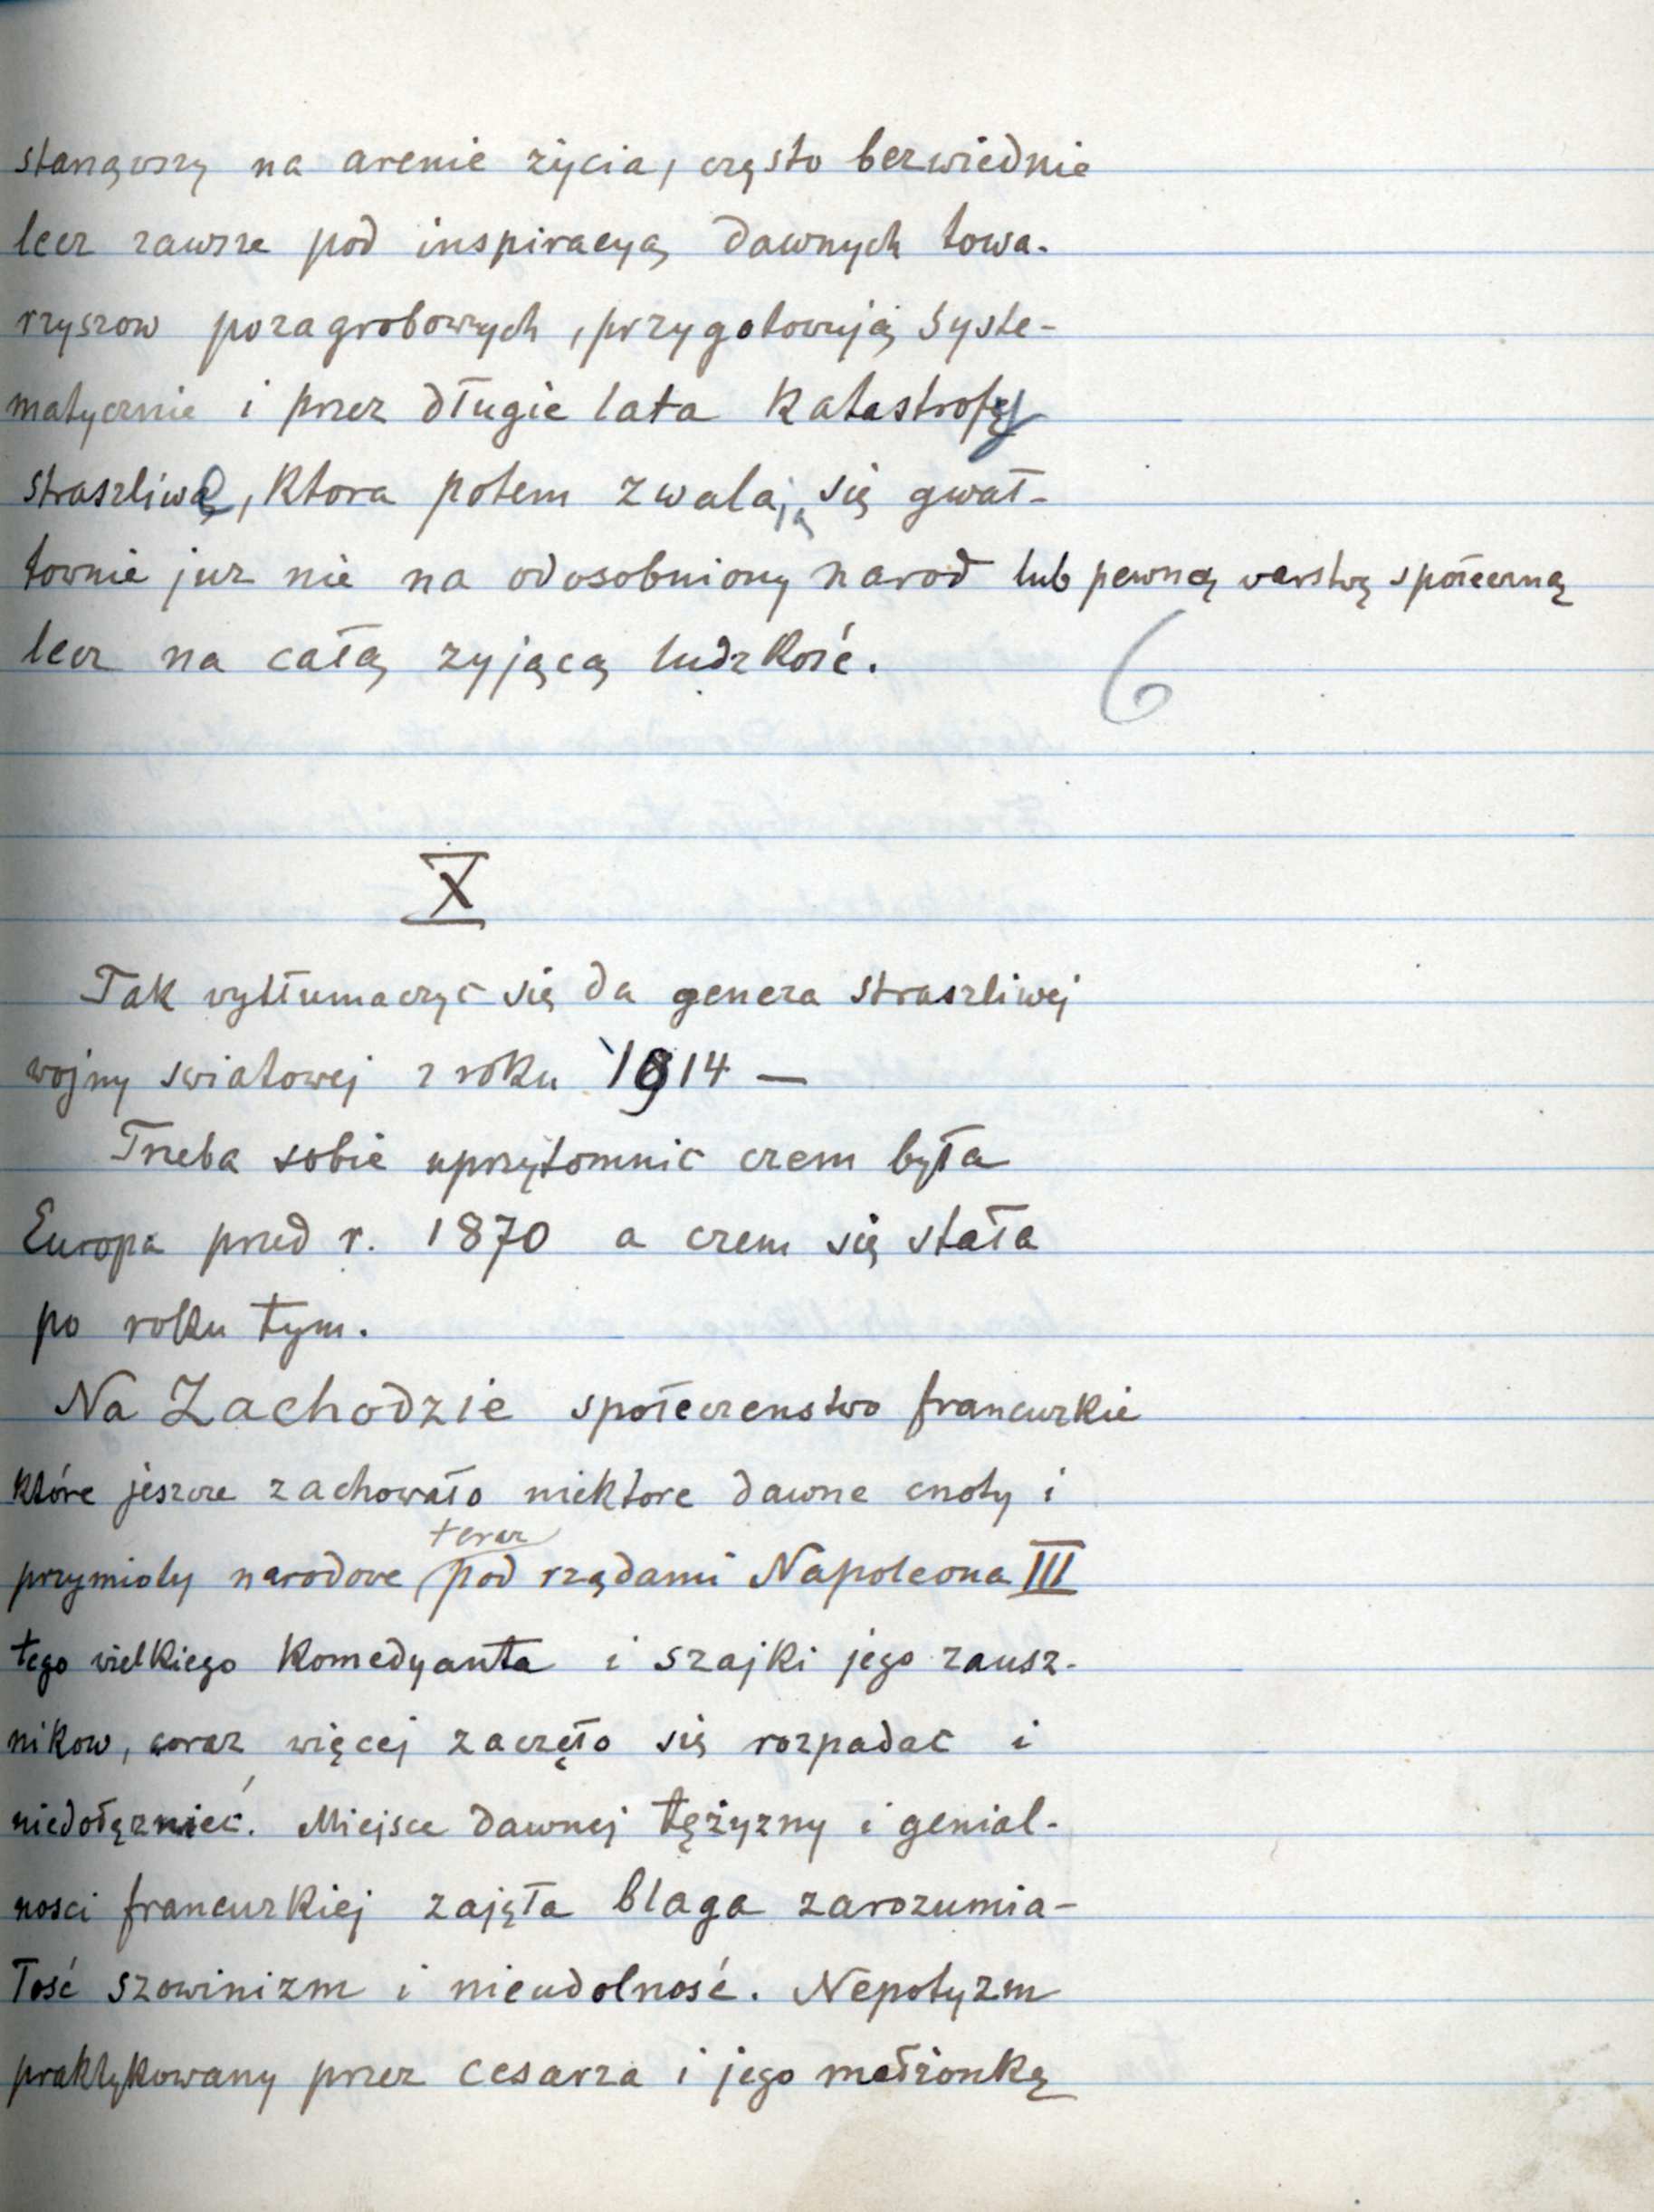 stanąwszy na arenie życia, często bezwiednie
lecz zawsze pod inspiracyą dawnych towa-
rzyszow pozagrobowych, przygotowują syste-
matycznie i przez długie lata katastrofę
straszliwą, ktora potem zwalają się gwał-
townie juz nie na odosobniony narod lub pewną warstwę społeczną
lecz na całą zyjącą ludzkość.
6
X
Tak wytłumaczyc się da geneza straszliwej
wojny swiatowej z roku 1914 —
Trzeba sobie uprzytomnic czem była
Europa przed r. 1870 a czem się stała
po roku tym.
Na Zachodzie społeczenstwo francuzkie
które jeszcze zachowało niektore dawne cnoty i
teraz
przymioty narodowe pod rządami Napoleona III
tego wielkiego komedyanta i szajki jego zausz-
nikow, coraz więcej zaczęło się rozpadac i
niedołęznieć. Miejsce dawnej tężyzny i genial-
nosci francuzkiej zajęła blaga zarozumia-
łość szowinizm i nieudolność. Nepotyzm
praktykowany przez cesarza i jego małżonkę